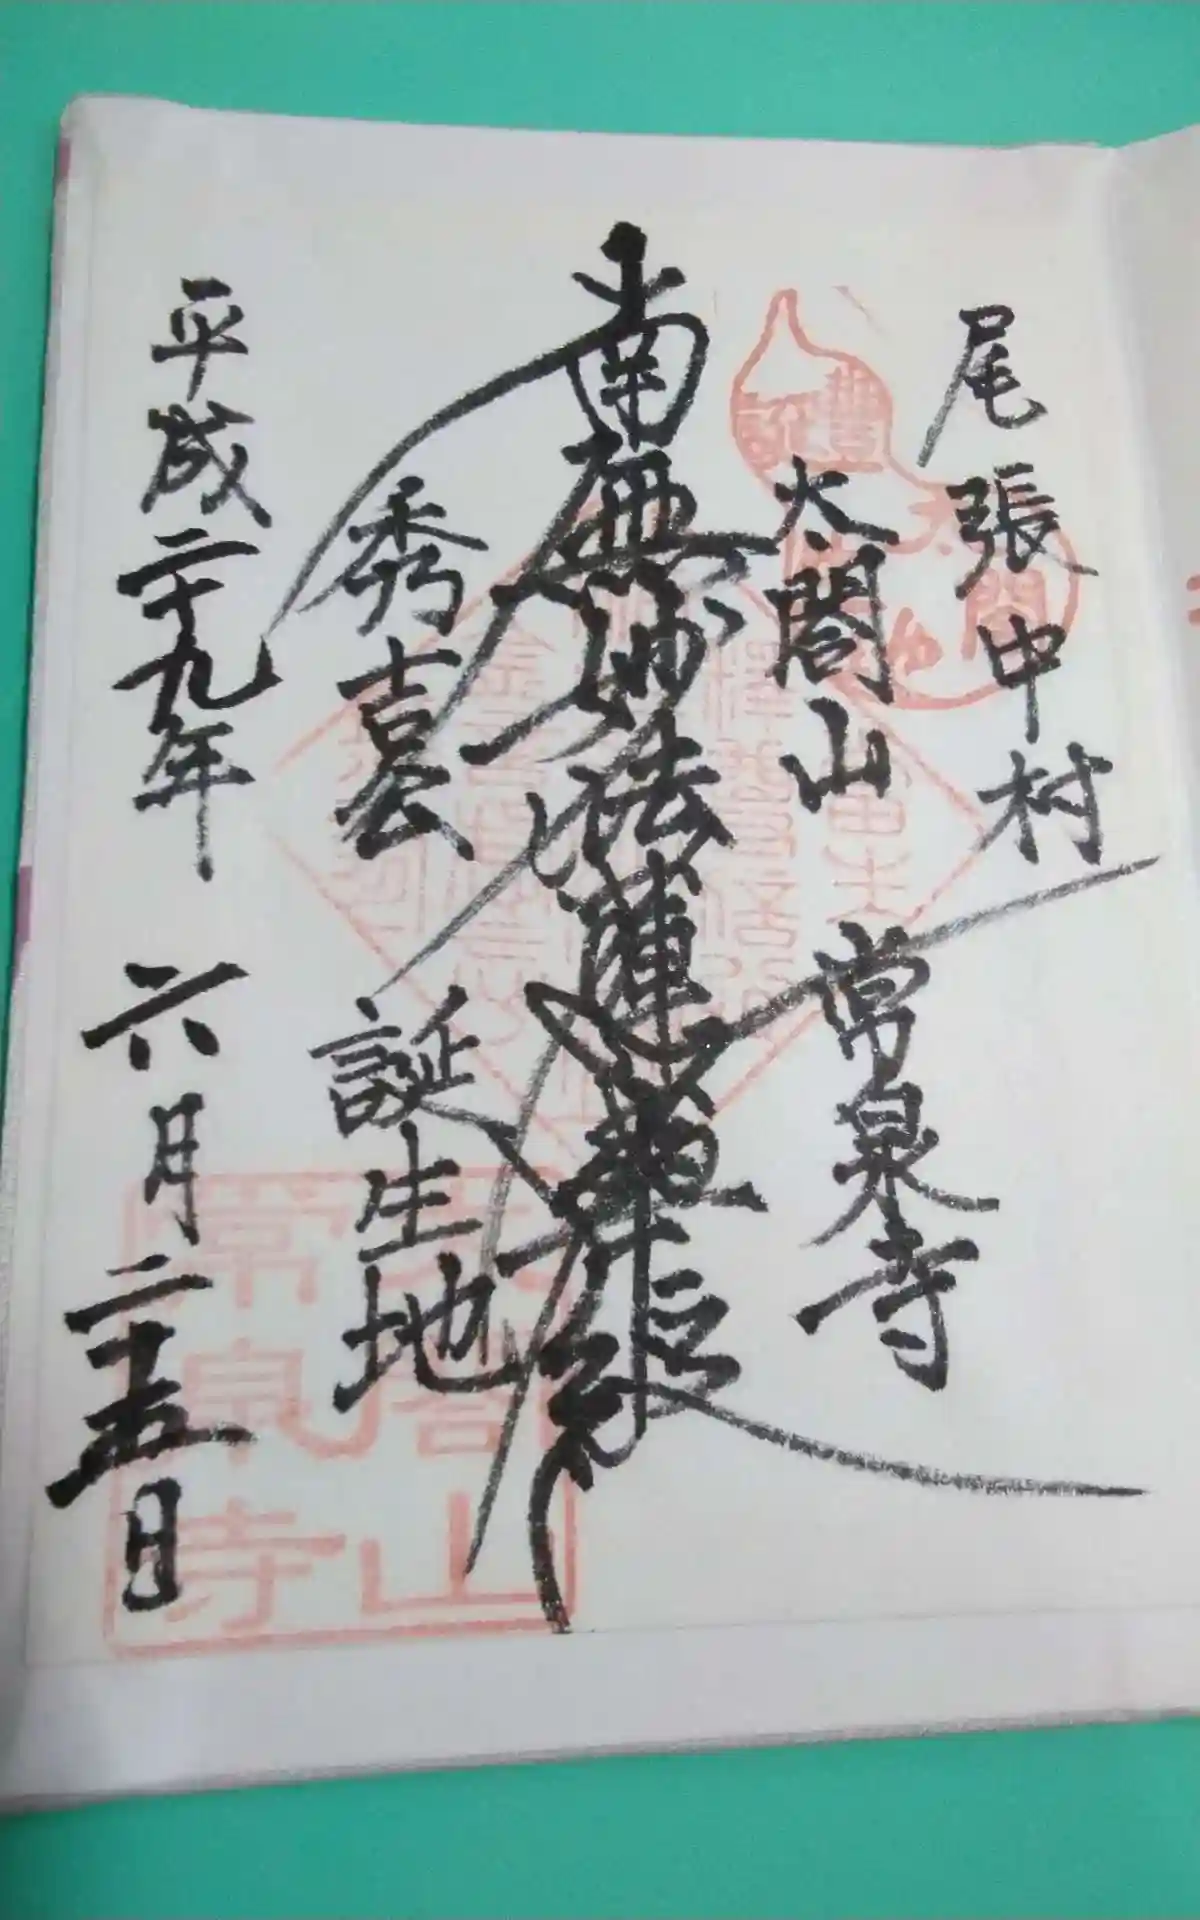 尾張中村
太閤山 常泉寺
南無妙法蓮華経
秀吉公 誕生地
平成二十九年 六月二十五日
豊
誕
太閤
太閤山
常泉寺